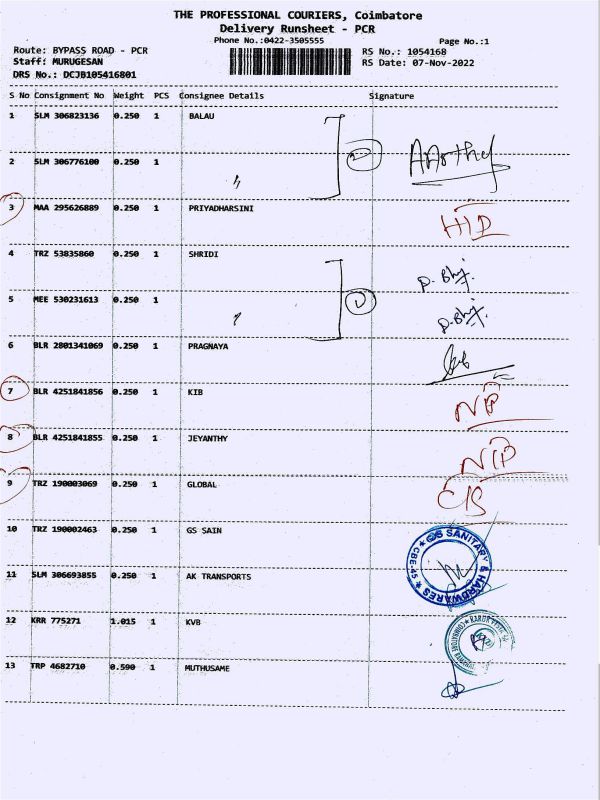 THE PROFESSIONAL COURIERS, Coimbatore
Delivery Runsheet - PCR
Phone No.:0422-3505555 Page No.:1
Route: BYPASS ROAD - PCR RS No.: 1054168
Staff: MURUGESAN RS Date: 07-Nov-2022
DRS No.: DCJB105416801
S No Consignment No Weight PCS Consignee Details Signature
1 SLM 306823136 0.250 1 BALAU
2 SLM 306776100 0.250 1
3 MAA 295626889 0.250 1 PRIYADHARSINI
4 TRZ 53835860 0.250 1 SHRIDI
5 MEE 530231613 0.250 1
6 BLR 2801341069 0.250 1 PRAGNAYA
7 BLR 4251841856 0.250 1 KIB
8 BLR 4251841855 0.250 1 JEYANTHY
9 TRZ 190003069 0.250 1 GLOBAL
C/S
10 TRZ 190002463 0.250 1 GS SAIN
GS SANITARY & HARDWARES CBE-45
11 SLM 306693855 0.250 1 AK TRANSPORTS
12 KRR 775271 1.015 1 KVB
13 TRP 4682710 0.590 1 MUTHUSAME